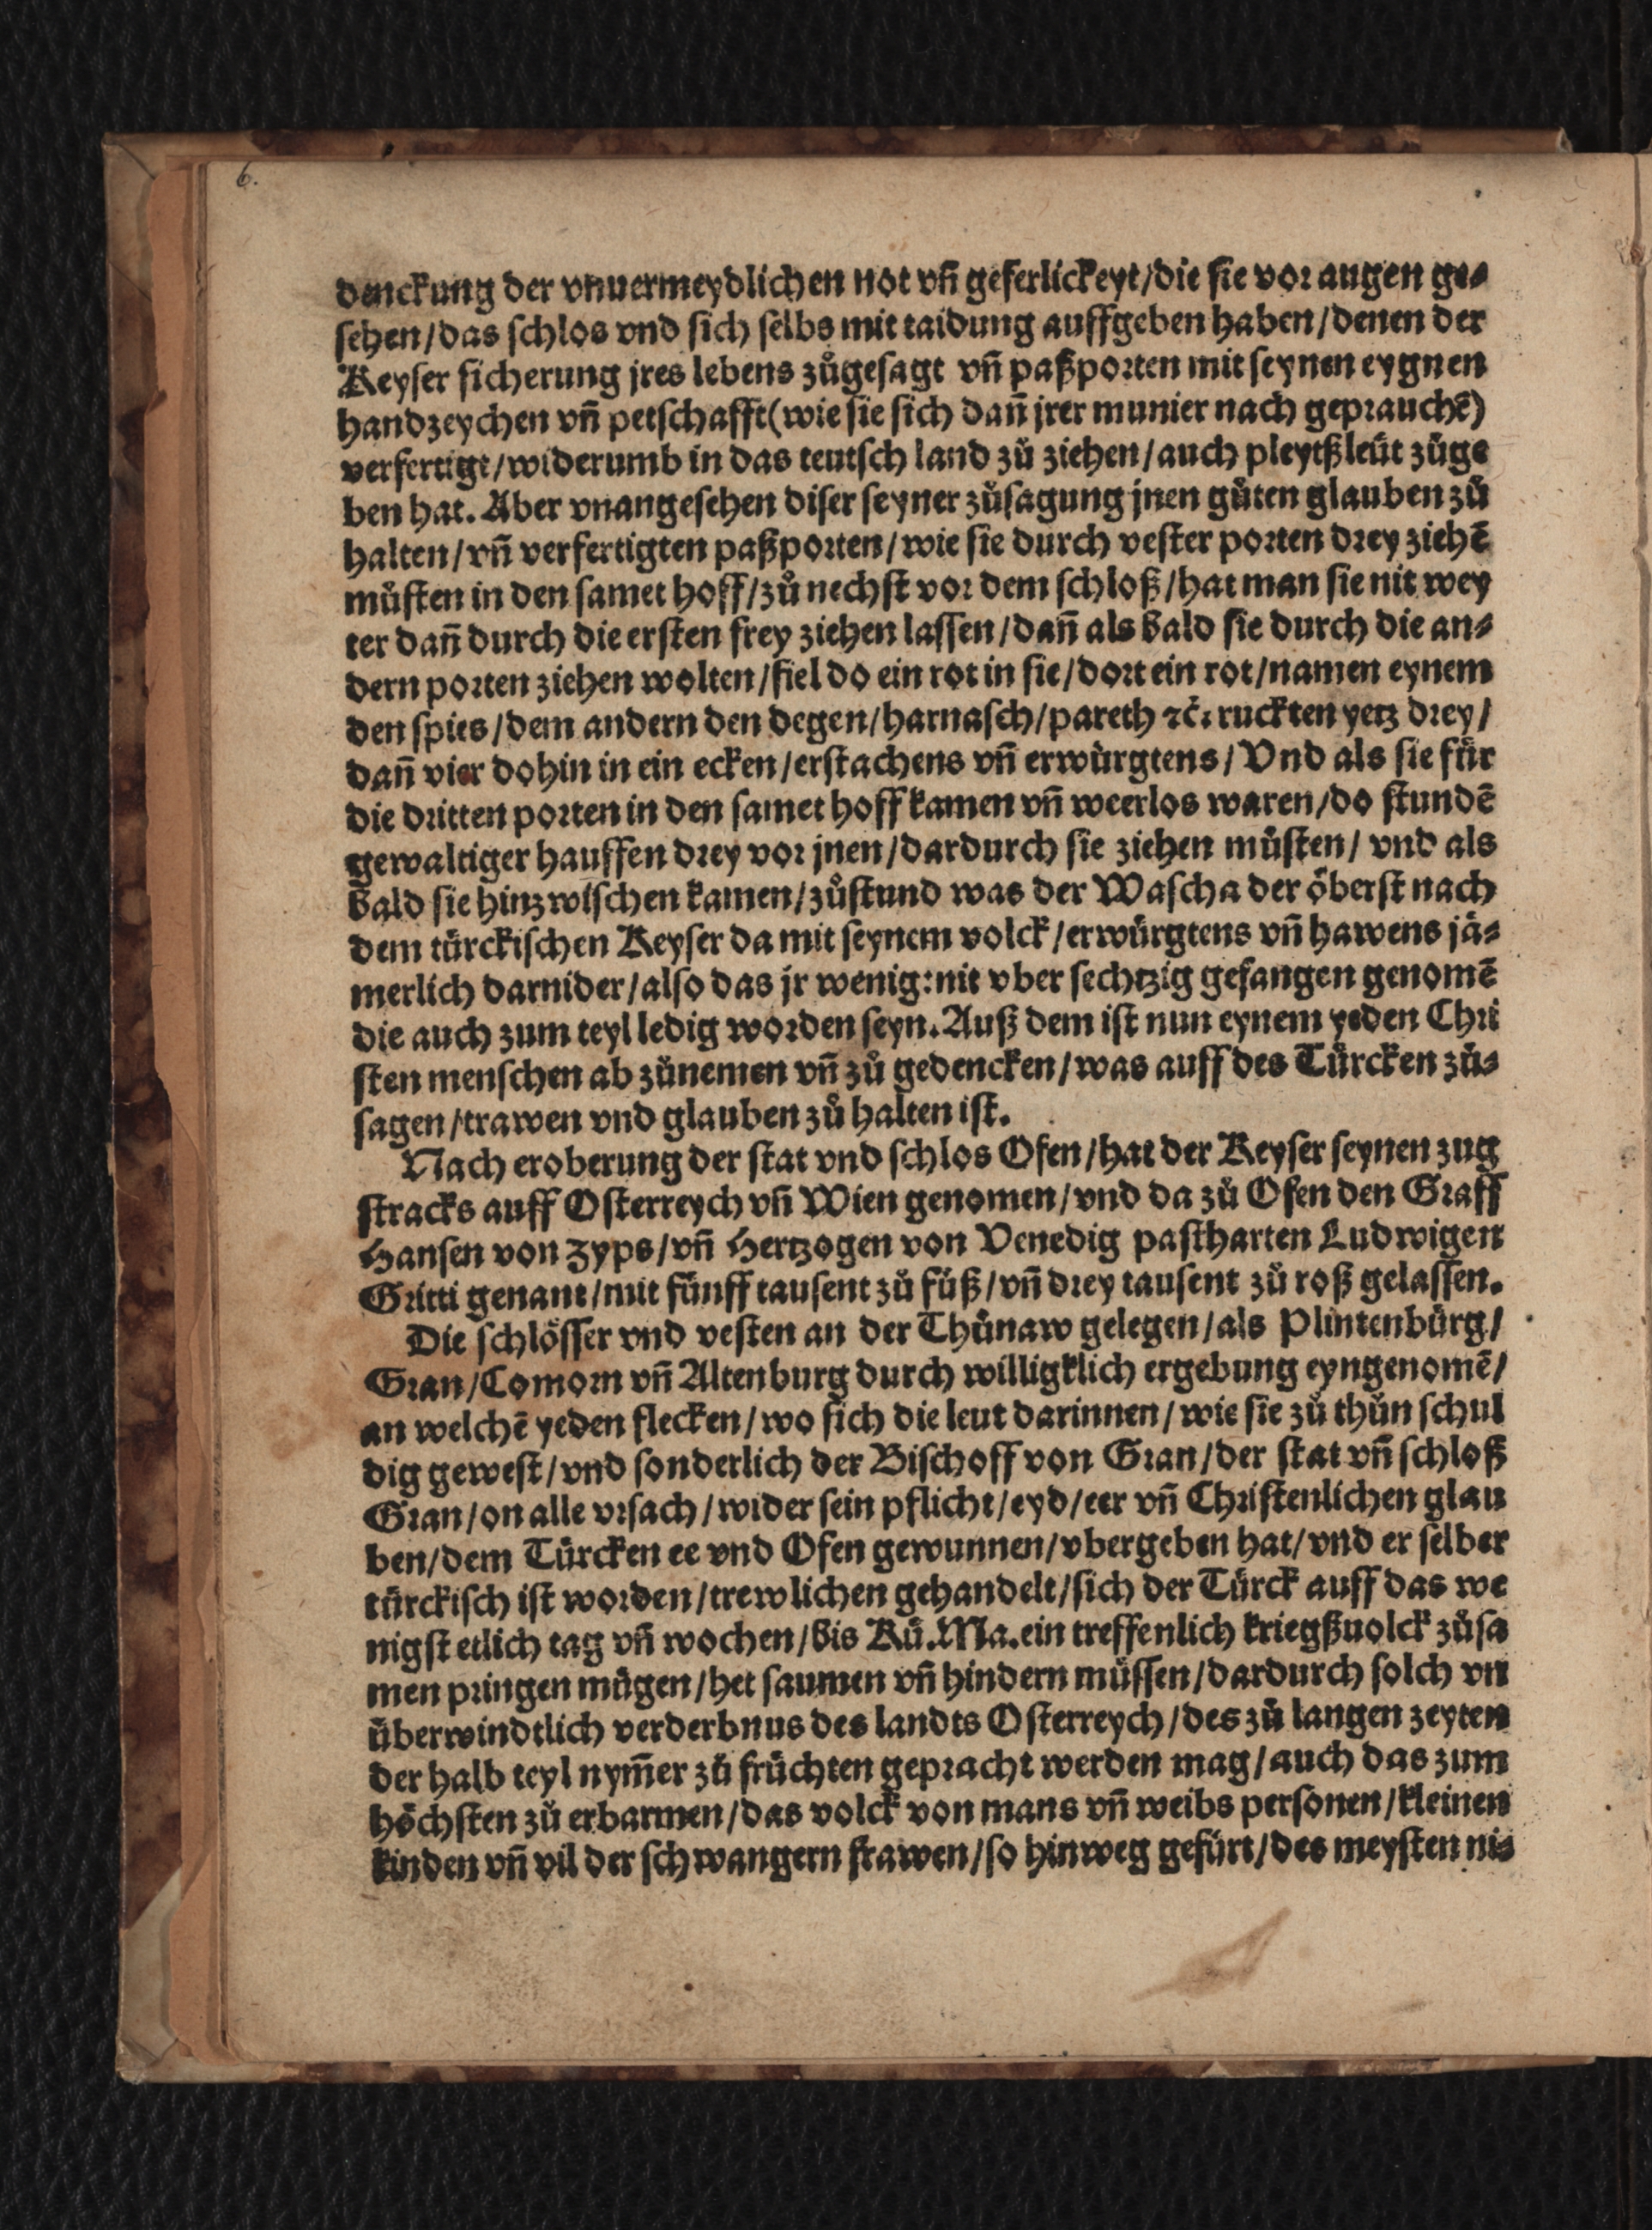 6.
denckung der vnuermeydlichen not vn̄ geferlickeyt/die sie vor augen ge⸗
sehen/das schlos vnd sich selbs mit taidung auffgeben haben/denen der
Keyser sicherung jres lebens zůgesagt vn̄ paßporten mit seynen eygnen
handzeychen vn̄ petschafft(wie sie sich dañ jrer munier nach geprauchē)
verfertigt/widerumb in das teutsch land zů ziehen/auch pleytßleüt zůge
ben hat. Aber vnangesehen diser seyner zůsagung jnen gůten glauben zů
halten/vn̄ verfertigten paßporten/wie sie durch vester porten drey ziehē
můsten in den samet hoff/zů nechst vor dem schloß/hat man sie nit wey
ter dañ durch die ersten frey ziehen lassen/dañ als bald sie durch die an⸗
dern porten ziehen wolten/fiel do ein rot in sie/dort ein rot/namen eynem
den spies/dem andern den degen/harnasch/pareth ⁊c̄. ruckten yetz drey/
dañ vier dohin in ein ecken/erstachens vn̄ erwürgtens/Vnd als sie für
die dritten porten in den samet hoff kamen vn̄ weerlos waren/do stundē
gewaltiger hauffen drey vor jnen/dardurch sie ziehen můsten/ vnd als
bald sie hinzwischen kamen/zůstund was der Wascha der öberst nach
dem türckischen Keyser da mit seynem volck/erwürgtens vn̄ hawens jä⸗
merlich darnider/also das jr wenig:nit vber sechtzig gefangen genomē
die auch zum teyl ledig worden seyn. Auß dem ist nun eynem yeden Chri
sten menschen ab zůnemen vn̄ zů gedencken/was auff des Türcken zů⸗
sagen/trawen vnd glauben zů halten ist.
Nach eroberung der stat vnd schlos Ofen/hat der Keyser seynen zug
stracks auff Osterreych vn̄ Wien genomen/vnd da zů Ofen den Graff
Hansen von Zyps/vn̄ Hertzogen von Venedig pastharten Ludwigen
Gritti genant/mit fünff tausent zů fůß/vn̄ drey tausent zů roß gelassen.
Die schlösser vnd vesten an der Thůnaw gelegen/als Plintenbürg/
Gran/Comorn vn̄ Altenburg durch willigklich ergebung eyngenomē/
an welchē yeden flecken/wo sich die leut darinnen/wie sie zů thůn schul
dig gewest/vnd sonderlich der Bischoff von Gran/der stat vn̄ schloß
Gran/on alle vrsach/wider sein pflicht/eyd/eer vn̄ Christenlichen glau
ben/dem Türcken ee vnd Ofen gewunnen/vbergeben hat/vnd er selber
türckisch ist worden/trewlichen gehandelt/sich der Türck auff das we
nigst etlich tag vn̄ wochen/bis Kü.Ma.ein treffenlich kriegßuolck zůsa
men pringen mügen/het saumen vn̄ hindern müssen/dardurch solch vn
überwindtlich verderbnus des landts Osterreych/des zů langen zeyten
der halb teyl nym̄er zů früchten gepracht werden mag/auch das zum
höchsten zů erbarmen/das volck von mans vn̄ weibs personen/kleinen
kinden vn̄ vil der schwangern frawen/so hinweg gefürt/des meysten ni⸗